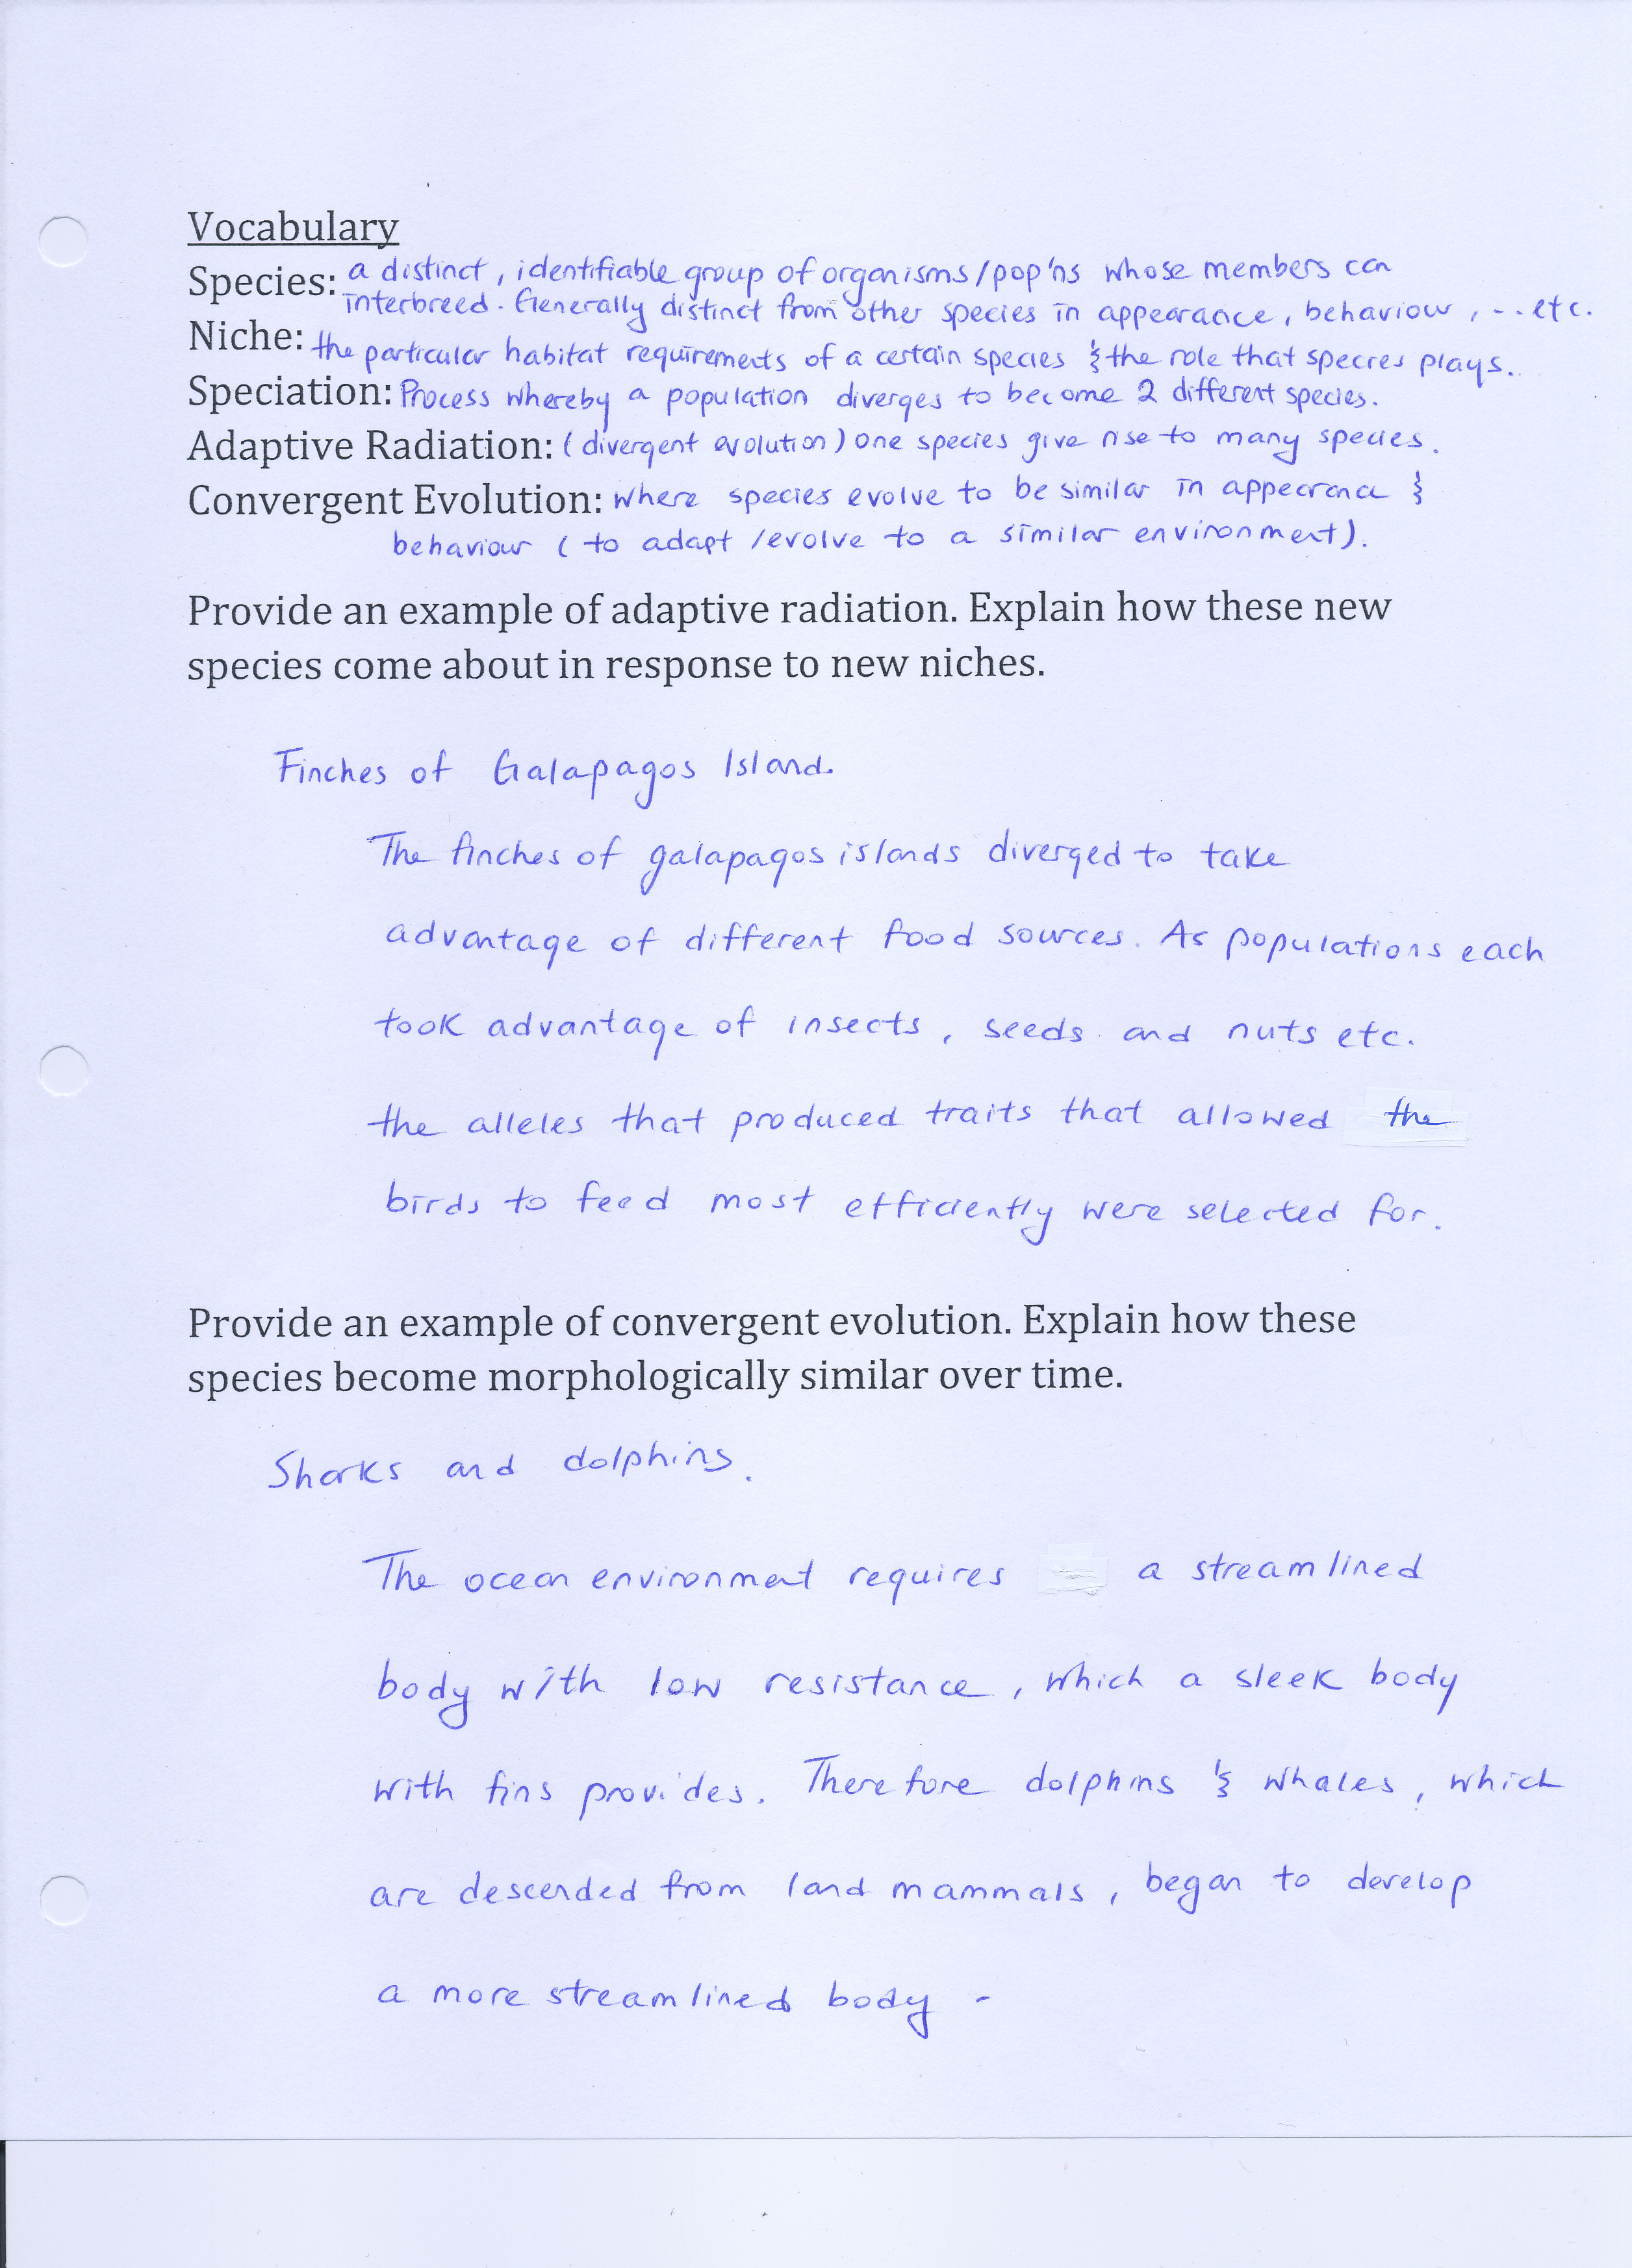 Vocabulary
Species: a distinct, identifiable group of organisms/pop'ns whose members can
interbreed. Generally distinct from other species in appearance, behaviour, ... etc.
Niche: the particular habitat requirements of a certain species & the role that species plays.
Speciation: Process whereby a population diverges to become 2 different species.
Adaptive Radiation: (divergent evolution) one species give rise to many species.
Convergent Evolution: where species evolve to be similar in appearance &
behaviour (to adapt /evolve to a similar environment).
Provide an example of adaptive radiation. Explain how these new
species come about in response to new niches.
Finches of Galapagos Island.
The finches of galapagos islands diverged to take
advantage of different food sources. As populations each
took advantage of insects, seeds and nuts etc.
the alleles that produced traits that allowed the
birds to feed most efficiently were selected for.
Provide an example of convergent evolution. Explain how these
species become morphologically similar over time.
Sharks and dolphins.
The ocean environment requires a streamlined
body with low resistance, which a sleek body
with fins provides. Therefore dolphins & whales, which
are descended from land mammals, began to develop
a more streamlined body -